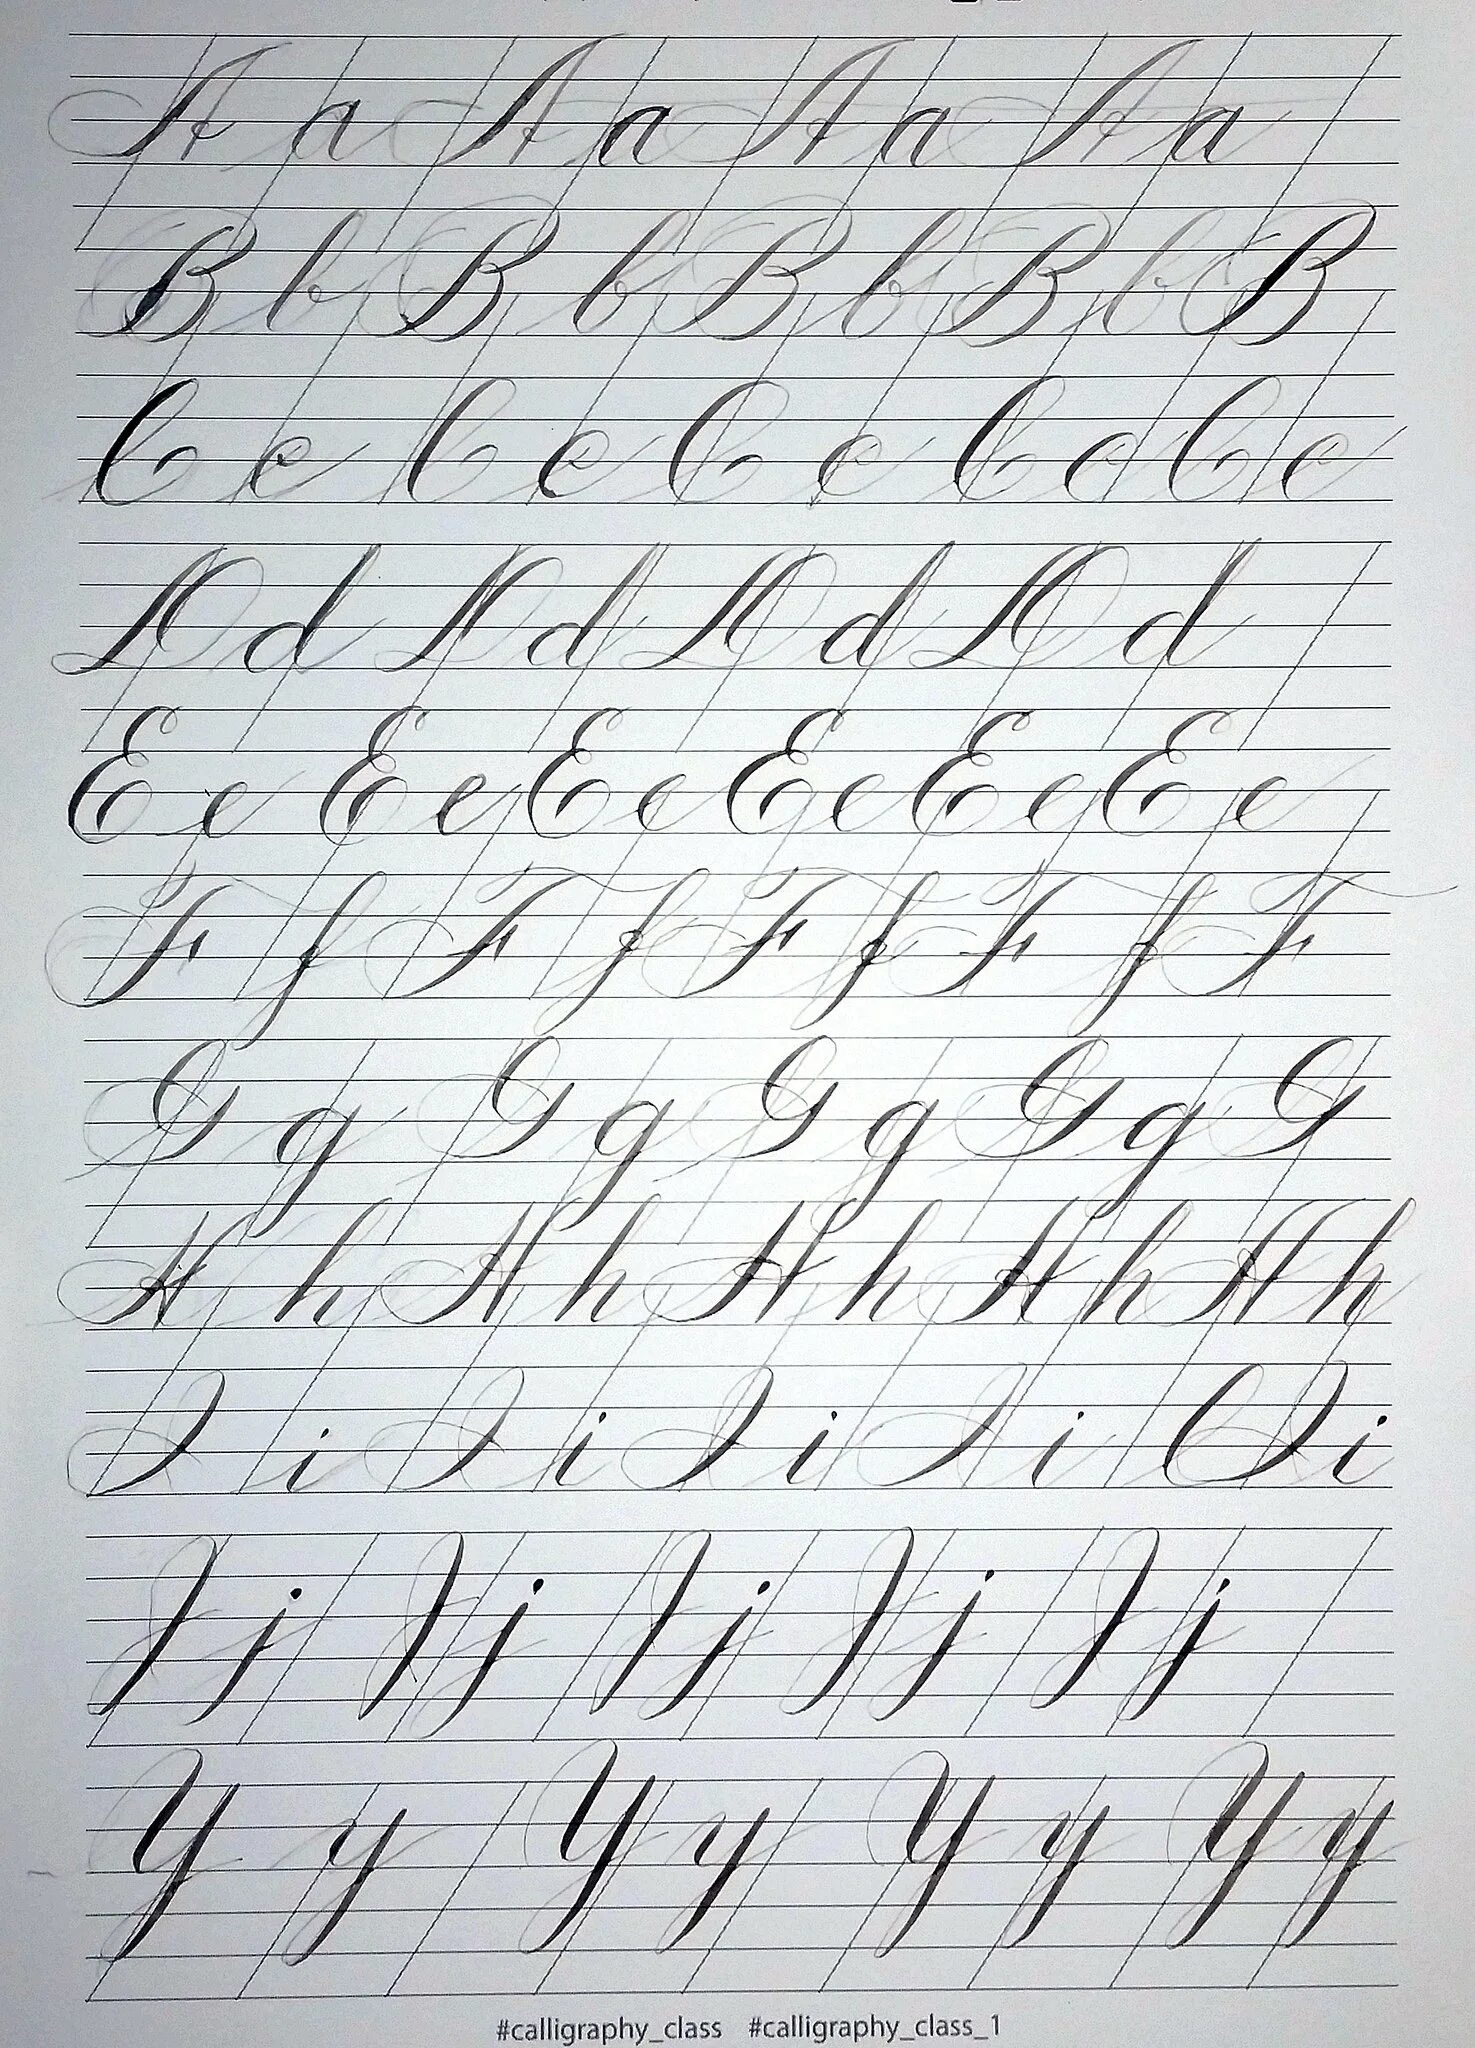 A a A a A a A a
B b B b B b B b B
C c C c C c C c C c
D d D d D d D d
E e E e E e E e E e E e
F f F f F f F f F
G g G g G g G g G
H h H h H h H h H h
I i I i I i I i I i
J j J j J j J j J j
Y y Y y Y y Y y
#calligraphy_class #calligraphy_class_1